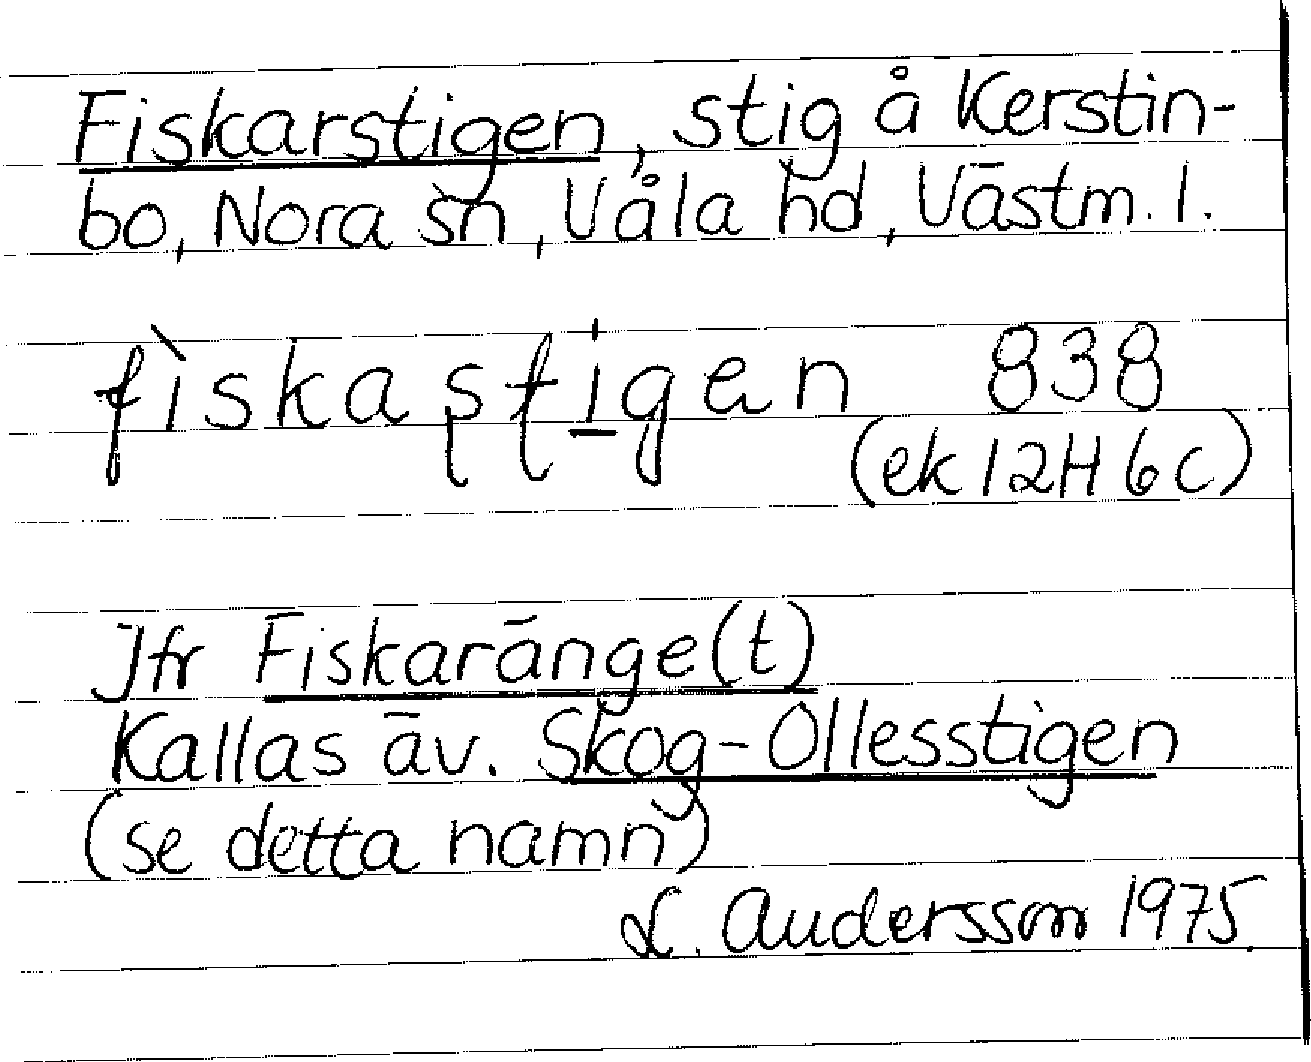 Fiskarstigen, stig å Kerstin-
bo, Nora sn, Våla hd, Västm. l.
fìskaʂʈi̠gən 838
(ek 12H 6c)
Jfr Fiskaränge(t)
Kallas äv. Skog-Ollesstigen
(se detta namn)
L. Andersson 1975